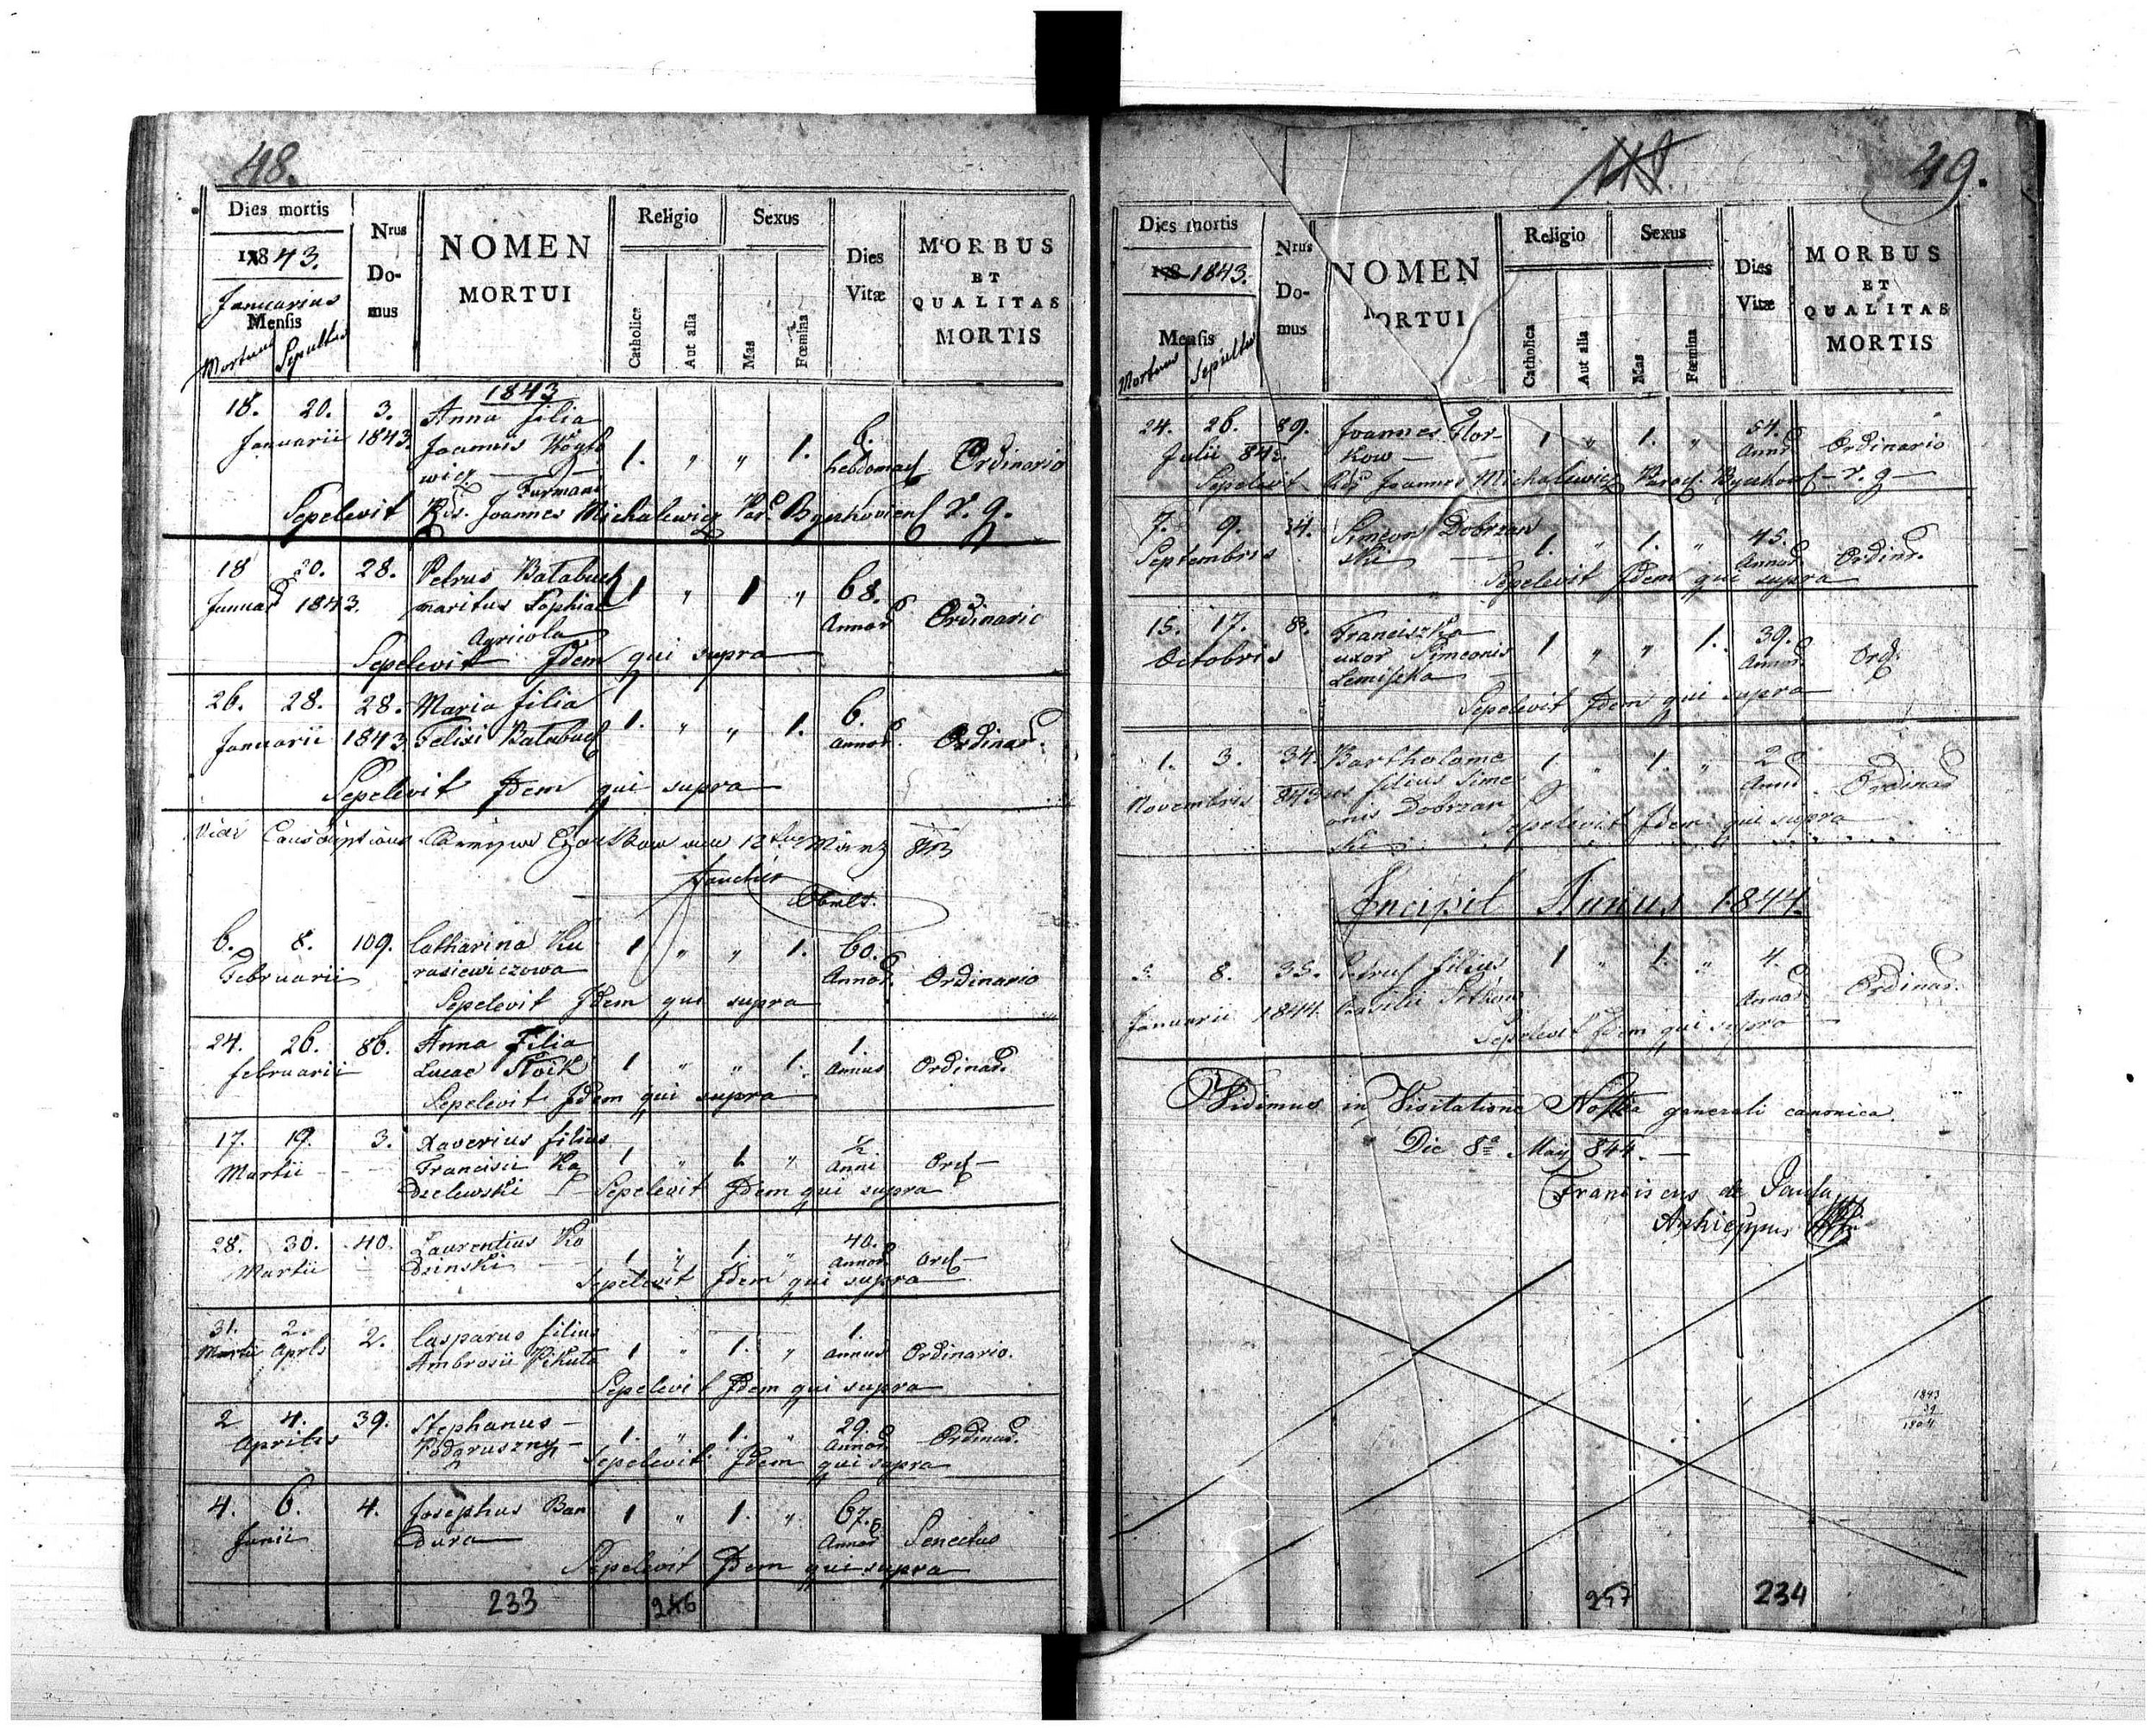 48.
Dies mortis
1843.
Januarius
Mensis
Mortuus Sepultus
Nrus Domus
NOMEN
MORTUI
Religio
Catholica
Aut alia
Sexus
Mas
Fœmina
Dies
Vitæ
MORBUS
ET
QUALITAS
MORTIS
1843
18. 20. 3. Anna filia
Januarii 1843. Joannis
1. " " 1. hebdomad Ordinario
Furmani
Sepelevit Rds. Joannes Michalewicz
18 20. 28. Petrus Batabuch 1 " 1 " 68.
Januar 1843. maritus Sophiae Annor Ordinario
Agricola
Sepelevit Idem qui supra
26. 28. 28. Maria filia 1. " " 1. 6.
Januarii 1843 Felixi Batabuch annor. Ordinar.
Sepelevit Idem qui supra
12 März
6. 8. 109. Catharina Ku 1 " " 1. 60.
Februarii rasiewiczowa Annor. Ordinario
Sepelevit Idem qui supra
24. 26. 86. Anna Filia 1.
februarii Lucae Stoik 1 " " 1. Annus Ordinar.
Sepelevit Idem qui supra
17. 19. 3. Xaverius filius 1 " 1. " ½
Martii Francisci Ka Anni Ord
dzelewski Sepelevit Idem qui supra
28. 30. 40. Laurentius Ko 1 " 1. " 40.
Martii dzinski Annor Ord
Sepelevit Idem qui supra
31. 2. 2. Casparus filius 1.
Martii Aprls Ambrosii Pikuta 1 " 1. " annus Ordinario.
Sepelevit Idem qui supra
2 4. 39. Stephanus 1. " 1. " 29.
Aprilis Podgruszny Annor. Ordinar.
Sepelevit Idem qui supra
4. 6. 4. Josephus Ban 1 " 1. " 67.
Junii dura Annor Senectus
Sepelevit Idem qui supra
233 246
49.
Dies mortis
1843.
Mensis
Mortuus Sepultus
Nrus Domus
NOMEN
MORTUI
Religio
Catholica
Aut alia
Sexus
Mas
Fœmina
Dies
Vitæ
MORBUS
ET
QUALITAS
MORTIS
24. 26. 89. Joannes Flor- 1 " 1. " 54.
Julii kow Annor Ordinario
Sepelevit Rds Joannes Michalewicz
7. 9. 34. Simeon Dobrzan 1. " 1. " 45.
Septembris ski Annor Ordinr.
Sepelevit Idem qui supra
15. 17. 8. Franciszka 39.
Octobris uxor Simeonis 1 " " 1. Annor. Ord.
Lemiszka
Sepelevit Idem qui supra
1. 3. 34. Bartholome 1. " 1. " 2
Novembris 843 us filius Sime Annor Ordinar
onis Dobrzan
ski Sepelevit Idem qui supra
Incipit Annus 1844.
8. 35. Petrus filius 1 " 1. " 4.
Januarii 1844. Basilii Annor Ordinar.
Sepelevit Idem qui supra
Vidimus in Visitatione Nostra generali canonica
Die 8a May 844.
Franciscus de Paula
Archieppus
1843
39
1804
257 234